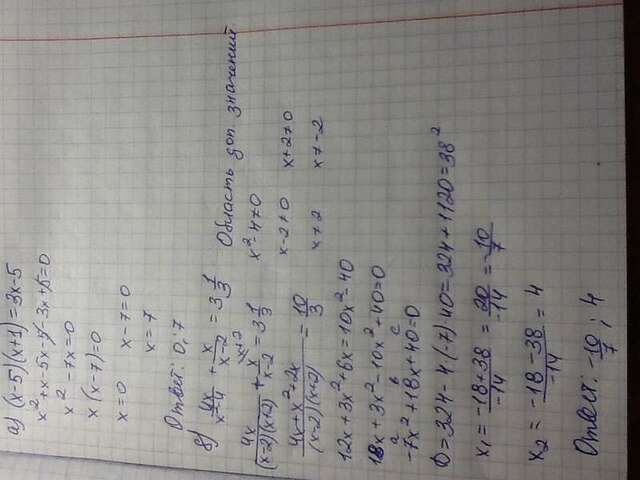 а) (x-5)(x+1)=3x-5
x²+x-5x-5-3x+5=0
x²-7x=0
x(x-7)=0
x=0 x-7=0
x=7
Ответ: 0; 7
в) 4x/x²-4 + x/x-2 = 3 1/3
Область доп. значений
4x/(x-2)(x+2) + x^x+2/x-2 = 3 1/3
x²-4≠0
x-2≠0 x+2≠0
4x+x²+2x/(x-2)(x+2) = 10/3
x≠2 x≠-2
12x+3x²+6x=10x²-40
18x+3x²-10x²+40=0
a в c
-7x²+18x+40=0
D=324-4·(-7)·40=324+1120=38²
x₁ = -18+38/-14 = 20/-14 = -10/7
x₂ = -18-38/-14 = 4
Ответ: -10/7; 4